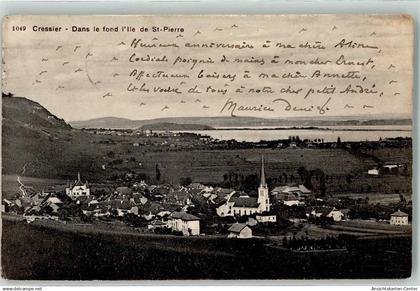 1049 Cressier - Dans le fond l'Ile de St-Pierre
Heureux anniversaire à ma chère Aline
Cordiale poignée de mains à mon cher Ernest,
Affectueux baisers à ma chère Annette,
et les vœux de tous à notre cher petit André,
Maurice
© Ansichtskarten-Center